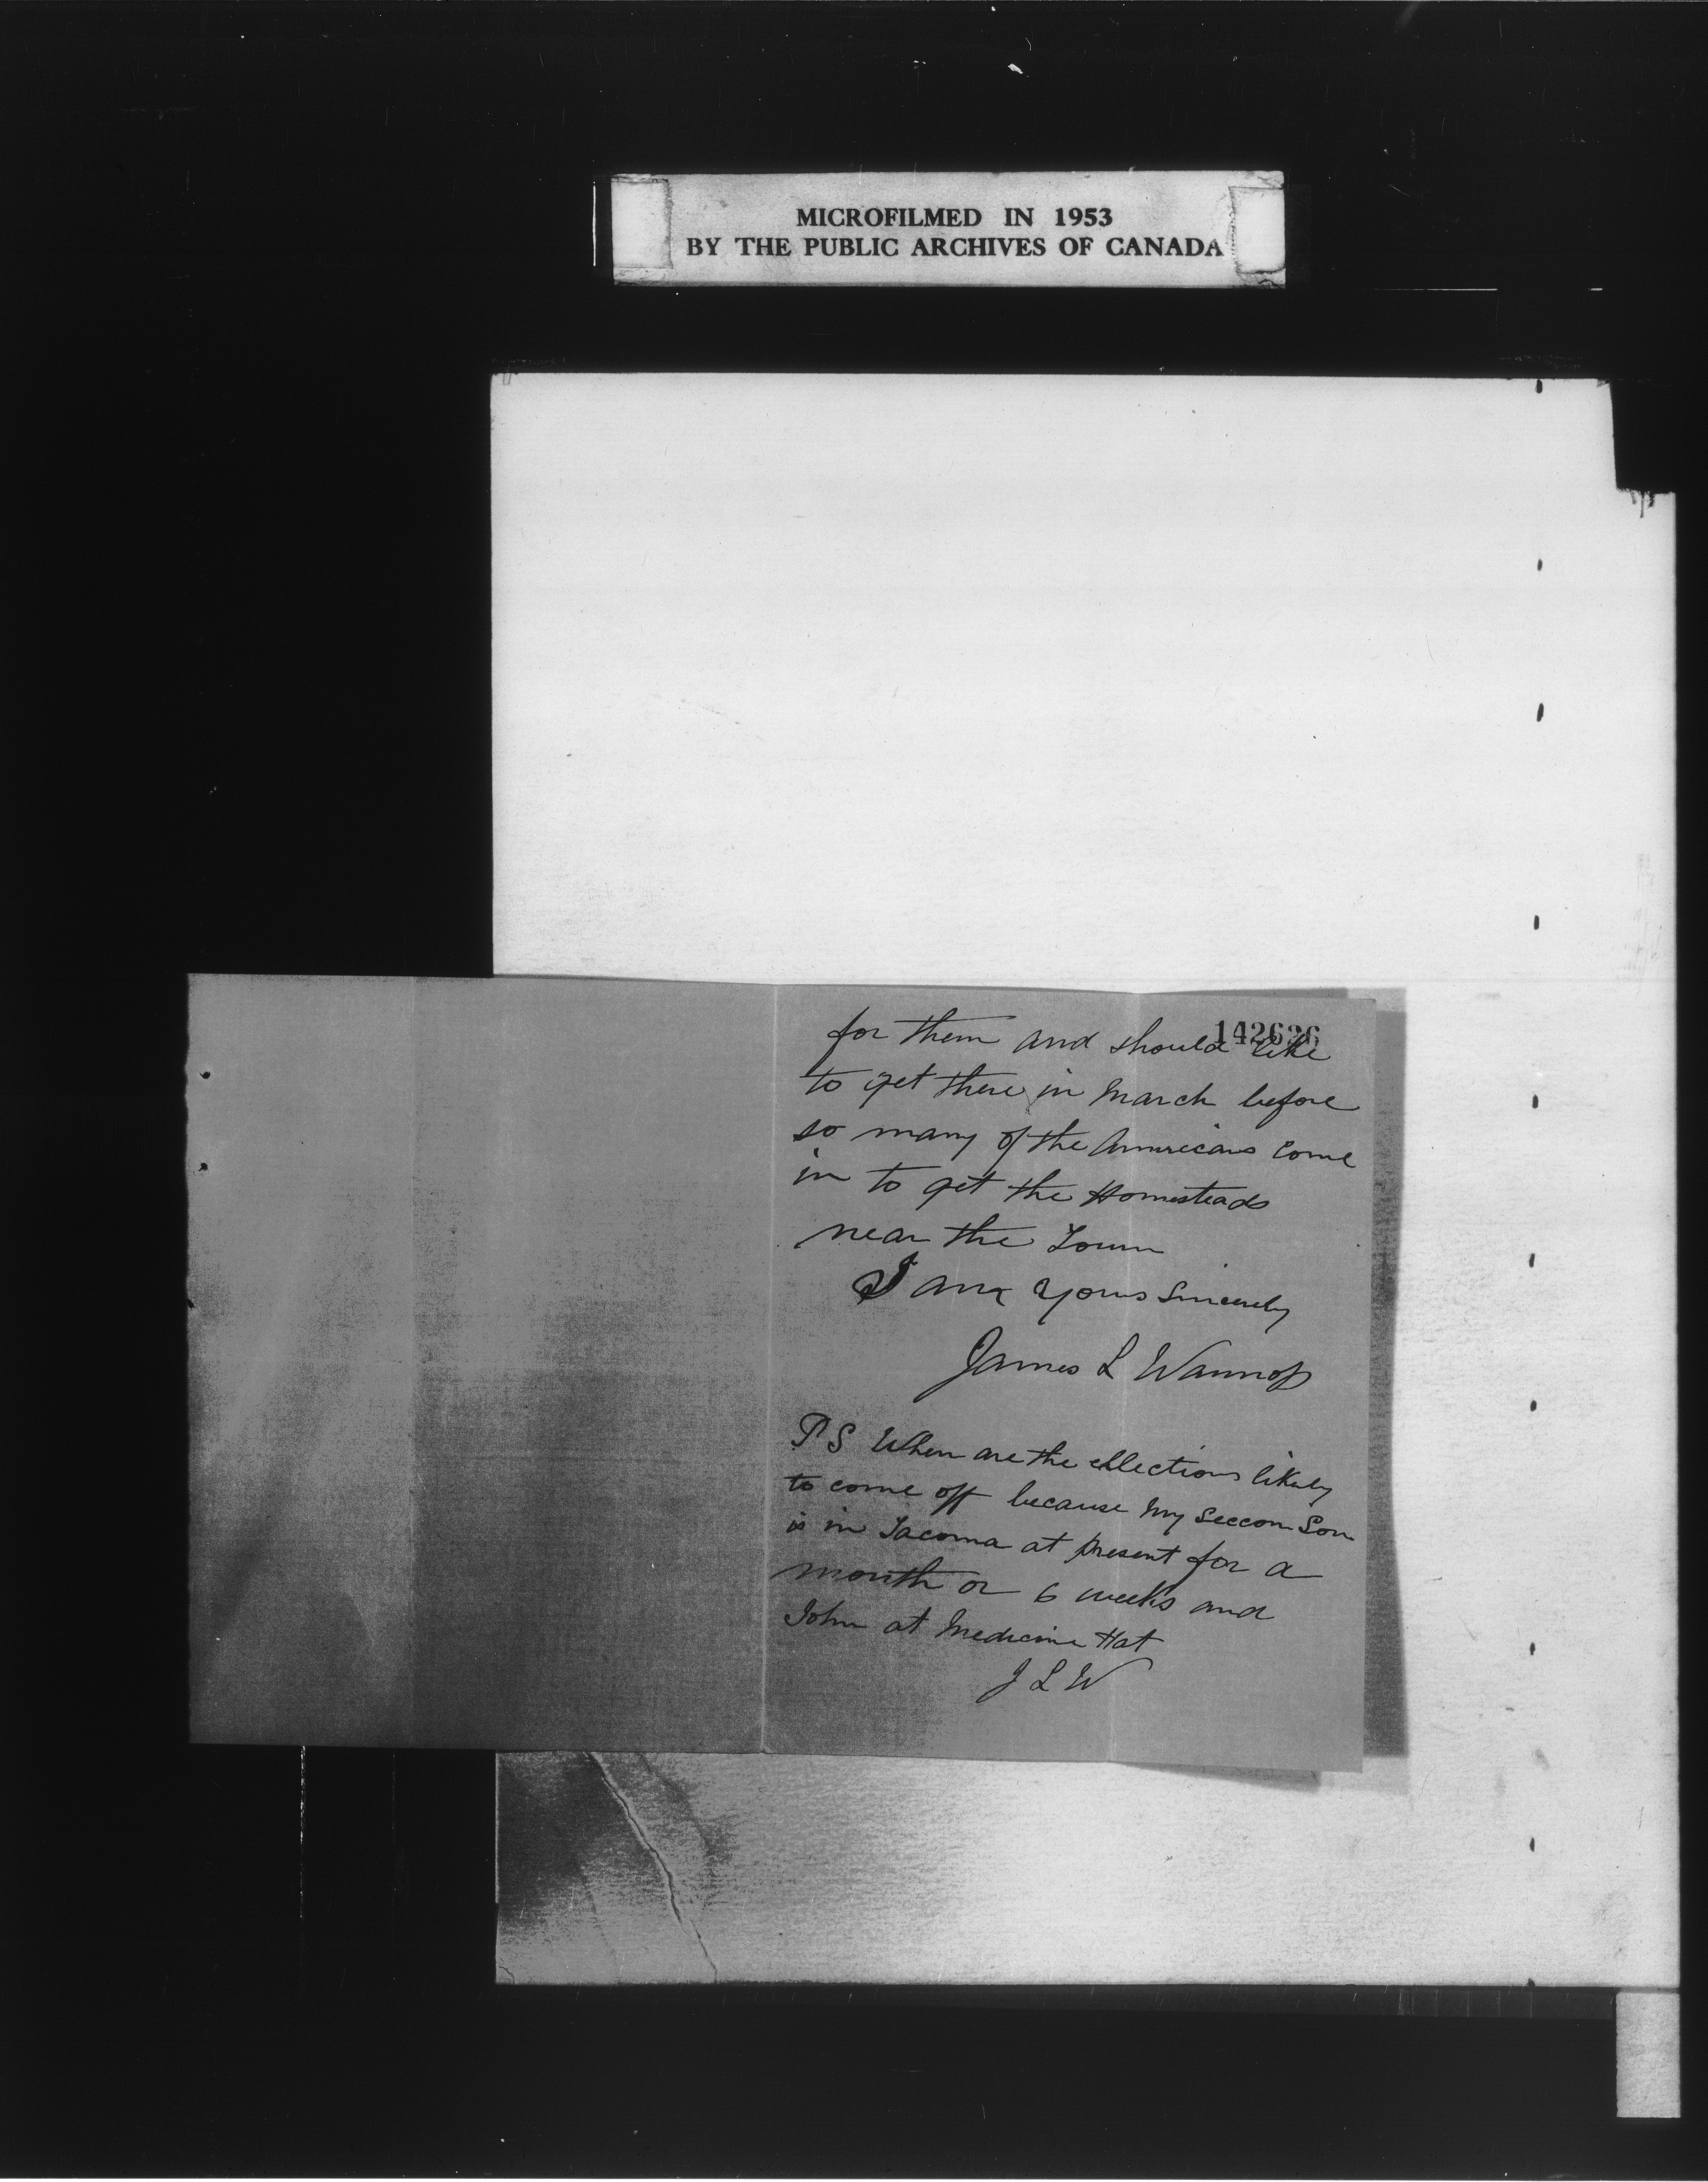 MICROFILMED IN 1953
BY THE PUBLIC ARCHIVES OF CANADA
142636
for them and should like
to get there in March before
so many of the Americans come
in to get the Homesteads
near the Town
I am Yours Sincerely
James L Wannop
PS When are the ellections likely
to come off because my seccon Son
is in Tacoma at present for a
month or 6 weeks and
John at Medicine Hat
J L W